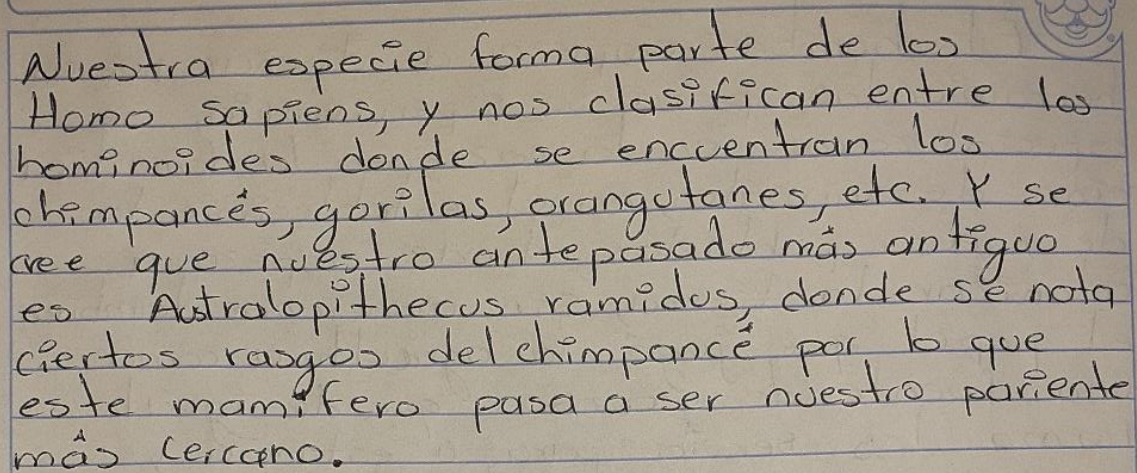 Nuestra especie forma parte de los
Homo sapiens, y nos clasifican entre los
hominoides donde se encuentran los
chimpancés, gorilas, orangutanes, etc. Y se
cree que nuestro antepasado más antiguo
es Australopithecus ramidus, donde se nota
ciertos rasgos del chimpancé por lo que
este mamifero pasa a ser nuestro pariente
más cercano.